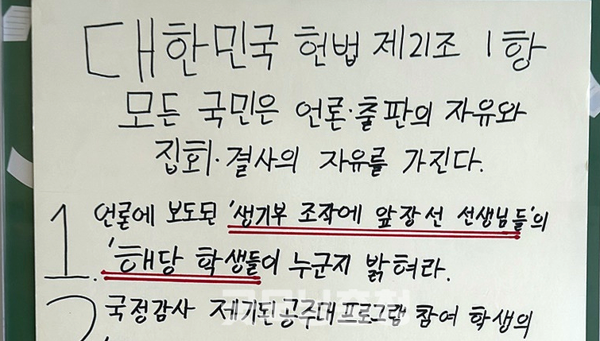 대한민국 헌법 제21조 1항
모든 국민은 언론·출판의 자유와
집회·결사의 자유를 가진다.
1. 언론에 보도된 '생기부 조작에 앞장선 선생님들'의
'해당 학생들이 누군지 밝혀라.
2. 국정감사 제기된 공주대 프로그램 참여 학생의